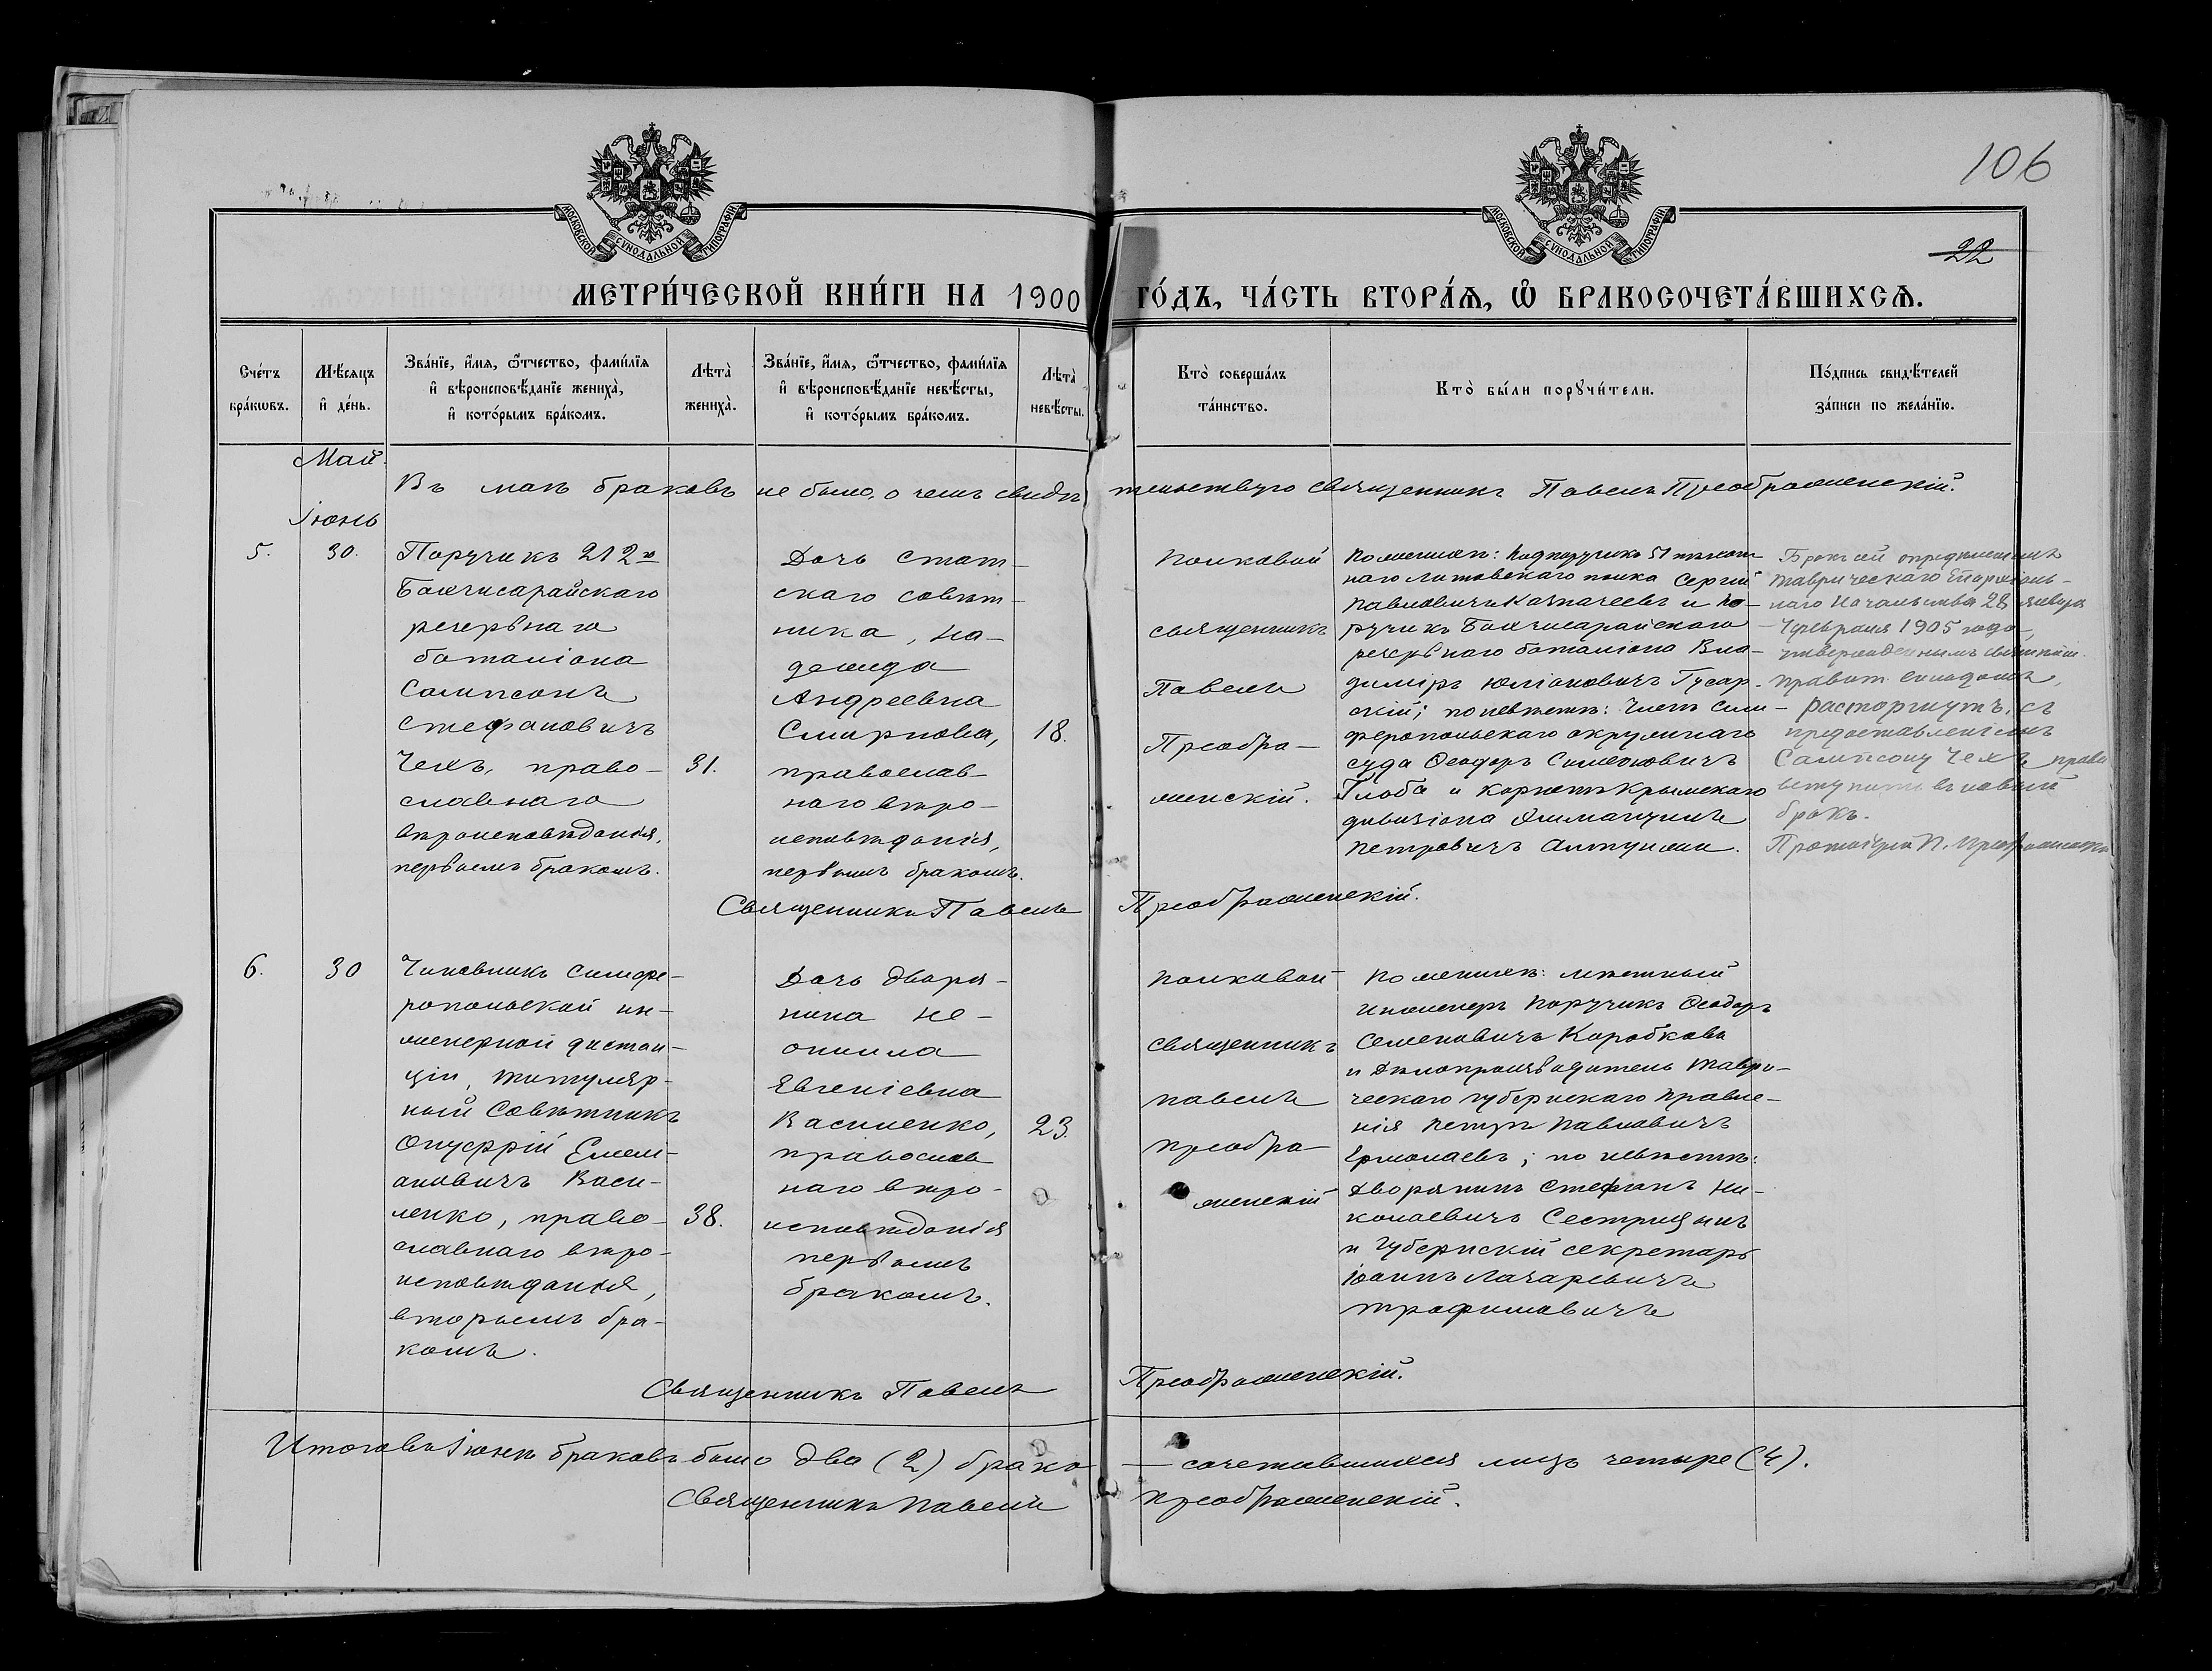 106
22
МОСКОВСКОЙ СѴНОДАЛЬНОЙ ТИПОГРАФІИ
МОСКОВСКОЙ СѴНОДАЛЬНОЙ ТИПОГРАФІИ
МЕТРИ́ЧЕСКОЙ КНИ́ГИ НА 1900 ГО́ДЪ, ЧА́СТЬ ВТОРА́Ѧ, Ѽ БРАКОСОЧЕТА́ВШИХСѦ.
Сче́тъ
бра́кѡвъ.
Мѣ́сяцъ
и҆ де́нь.
Зва́нїе, и҆́мя, ѻ҆́тчество, фами́лїя
и҆ вѣроисповѣ́данїе жениха̀,
и҆ кото́рымъ бра́комъ.
Лѣта̀
жениха̀.
Зва́нїе, и҆́мя, ѻ҆́тчество, фами́лїя
и҆ вѣроисповѣ́данїе невѣ́сты,
и҆ кото́рымъ бра́комъ.
Лѣта̀
невѣ́сты.
Кто̀ соверша́лъ
та́инство.
Кто̀ бы́ли порꙋчи́тели.
По́дпись свидѣ́телей
за́писи по жела́нїю.
Май.
Въ маѣ браковъ не было, о чемъ свидѣтельствую священникъ Павелъ Преображенскій.
Іюнь
5.
30.
Поручикъ 212го
Бахчисарайскаго
резервнаго
баталіона
Сампсонъ
Стефановичъ
Чехъ, право-
славнаго
вѣроисповѣданія,
первымъ бракомъ.
31.
Дочь стат-
скаго совѣт-
ника, На-
дежда
Андреевна
Смирнова,
православ-
наго вѣро-
исповѣданія,
первымъ бракомъ.
18.
Полковой
священникъ
Павелъ
Преобра-
женскій.
По женихѣ: Подпоручикъ 51 пѣхот-
наго Литовскаго полка Сергій
Павловичъ Казначеевъ и По-
ручикъ Бахчисарайскаго
резервнаго баталіона Вла-
диміръ Юліановичъ Гусар-
скій; по невѣстѣ: Членъ Сим-
феропольскаго окружнаго
суда Ѳеодоръ Симеоновичъ
Глоба и корнетъ Крымскаго
дивизіона
Петровичъ
Бракъ сей опредѣленіемъ
Таврическаго Епархіаль-
наго Начальства 28 января
февраля 1905 года,
утвержденнымъ Святѣйш.
Правит. Синодомъ,
расторгнутъ, съ
предоставленіемъ
Сампсону Чехъ права
вступить въ новый
бракъ.
Протоіерей П. Преображенскій
Священникъ Павелъ Преображенскій.
6.
30
Чиновникъ Симфе-
ропольской ин-
женерной дистан-
ціи, титуляр-
ный Совѣтникъ
Онуфрій Емель-
ановичъ Васи-
ленко, право-
славнаго вѣро-
исповѣданія,
вторымъ бра-
комъ.
38.
Дочь дворя-
нина Не-
онила
Евгеніевна
Василенко,
православ
наго вѣро-
исповѣданія
первымъ
бракомъ.
23.
Полковой
священникъ
Павелъ
Преобра-
женскій
По женихѣ: мѣстный
инженеръ поручикъ Ѳеодоръ
Семеновичъ Коробковъ
и Дѣлопроизводитель Таври-
ческаго губернскаго правле-
нія Петръ Павловичъ
Ермолаевъ; по невѣстѣ:
дворянинъ Стефанъ Ни-
колаевичъ
и Губернскій секретарь
Іоаннъ Лазаревичъ
Трофимовичъ
Священникъ Павелъ Преображенскій.
Итого въ Іюнѣ браковъ было два (2) брако-сочетавшихся лицъ четыре (4).
Священникъ Павелъ Преображенскій.